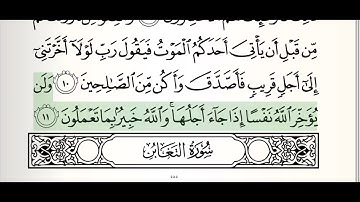 مِّن قَبْلِ أَن يَأْتِىَ أَحَدَكُمُ ٱلْمَوْتُ فَيَقُولَ رَبِّ لَوْلَآ أَخَّرْتَنِىٓ
إِلَىٰٓ أَجَلٍ قَرِيبٍ فَأَصَّدَّقَ وَأَكُن مِّنَ ٱلصَّـٰلِحِينَ ١٠ وَلَن
يُؤَخِّرَ ٱللَّهُ نَفْسًا إِذَا جَآءَ أَجَلُهَا ۚ وَٱللَّهُ خَبِيرٌۢ بِمَا تَعْمَلُونَ ١١
سُورَةُ التَّغَابُنِ